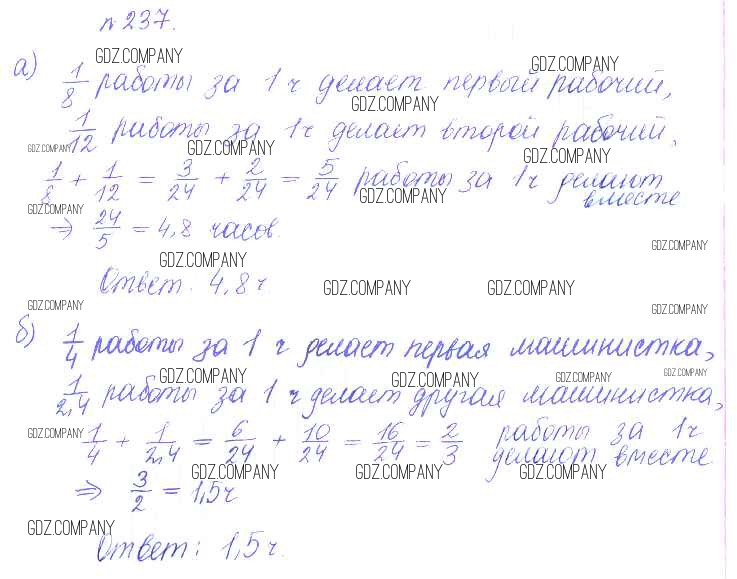 № 237.
а) GDZ.COMPANY GDZ.COMPANY
1/8 работы за 1 ч делает первый рабочий,
GDZ.COMPANY
1/12 работы за 1 ч делает второй рабочий,
GDZ.COMPANY GDZ.COMPANY GDZ.COMPANY
1/8 + 1/12 = 3/24 + 2/24 = 5/24 работы за 1 ч делают вместе
GDZ.COMPANY GDZ.COMPANY
⇒ 24/5 = 4,8 часов.
GDZ.COMPANY GDZ.COMPANY
Ответ. 4,8 ч
GDZ.COMPANY GDZ.COMPANY
GDZ.COMPANY GDZ.COMPANY
б) 1/4 работы за 1 ч делает первая машинистка,
GDZ.COMPANY GDZ.COMPANY GDZ.COMPANY GDZ.COMPANY
1/2,4 работы за 1 ч делает другая машинистка,
GDZ.COMPANY
1/4 + 1/2,4 = 6/24 + 10/24 = 16/24 = 2/3 работы за 1 ч делают вместе.
GDZ.COMPANY GDZ.COMPANY GDZ.COMPANY
⇒ 3/2 = 1,5 ч
GDZ.COMPANY
Ответ: 1,5 ч.